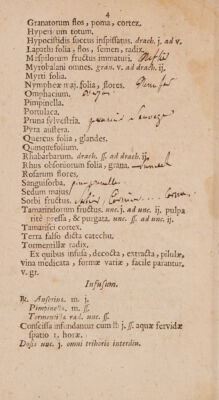 4
Granatorum flos, poma, cortex.
Hypericum totum.
Hypocistidis succus inspissatus, drach. j. ad v.
Lapathi folia, flos, semen, radix.
Mespilorum fructus immaturi,
Myrobalani omnes. gran. v. ad drach. ij.
Myrti folia.
Nymphææ rad. folia, flores.
Omphacium.
Pimpinella.
Portulaca.
Pruna sylvestria,
Pyra austera.
Quercus folia, glandes.
Quinquefolium.
Rhabarbarum. drach. ss. ad drach. ij.
Rhus obsoniorum folia, grana,
Rosarum flores.
Sanguisorba. pimpinelle
Sedum majus/
Sorbi fructus.
Tamarindorum fructus. unc. j. ad unc. ij. pulpa
rite pressa, & purgata. unc. ss. ad unc. ij.
Tamarisci cortex.
Terra falso dicta catechu.
Tormentillæ radix.
Ex quibus infusa, decocta, extracta, pilulæ,
vina medicata, formæ variæ, facile parantur.
v. gr.
Infusum.
℞. Anserinæ. m. j.
Pimpinella. m. ss.
Tormentilla rad. unc. ss.
Concissa infundantur cum ℔ j. ss. aquæ fervidæ
spatio 1. horæ.
Dosis unc. j. omni trihoris interdiu.